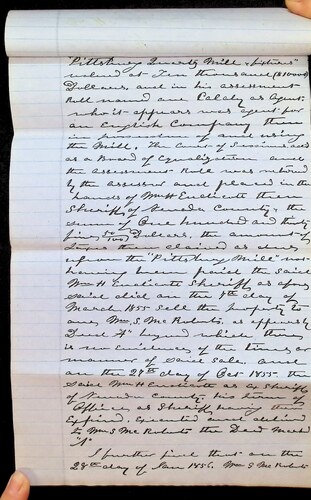 "Pittsburg Quartz Mill & fixtures"
valued at Ten thousand ($10000)
Dollars, and in his assessment
Roll named one as Agent.
who it appears was agent for
an English Company then
in possession of and using
the Mill. The Court of Sessions sat
as a Board of Equalization and
the Assessment Roll was returned
by the assessor and placed in the
hands of Wm H Endicute then
Sheriff of Nevada County, the
sum of One hundred and thirty
five 50/100 Dollars, the amount of
then claimed as due
upon the "Pittsburg Mill" not
having been paid the said
Wm H Endicute Sheriff as afore
said did on the day of
March 1855 sell the property to
one Wm S. McRoberts, as appears by
Deed "A" beyond which there
is no evidence of the time or
manner of said sale, and
on the 27th day of Oct 1855. the
said Wm H Endicute as Ex Sheriff
of Nevada County, his term of
Office, as Sheriff having then
Expired, Executed and delivered
to Wm S. McRoberts the Deed marked
"A"
I further find that on the
28th day of Jan 1856, Wm S McRoberts